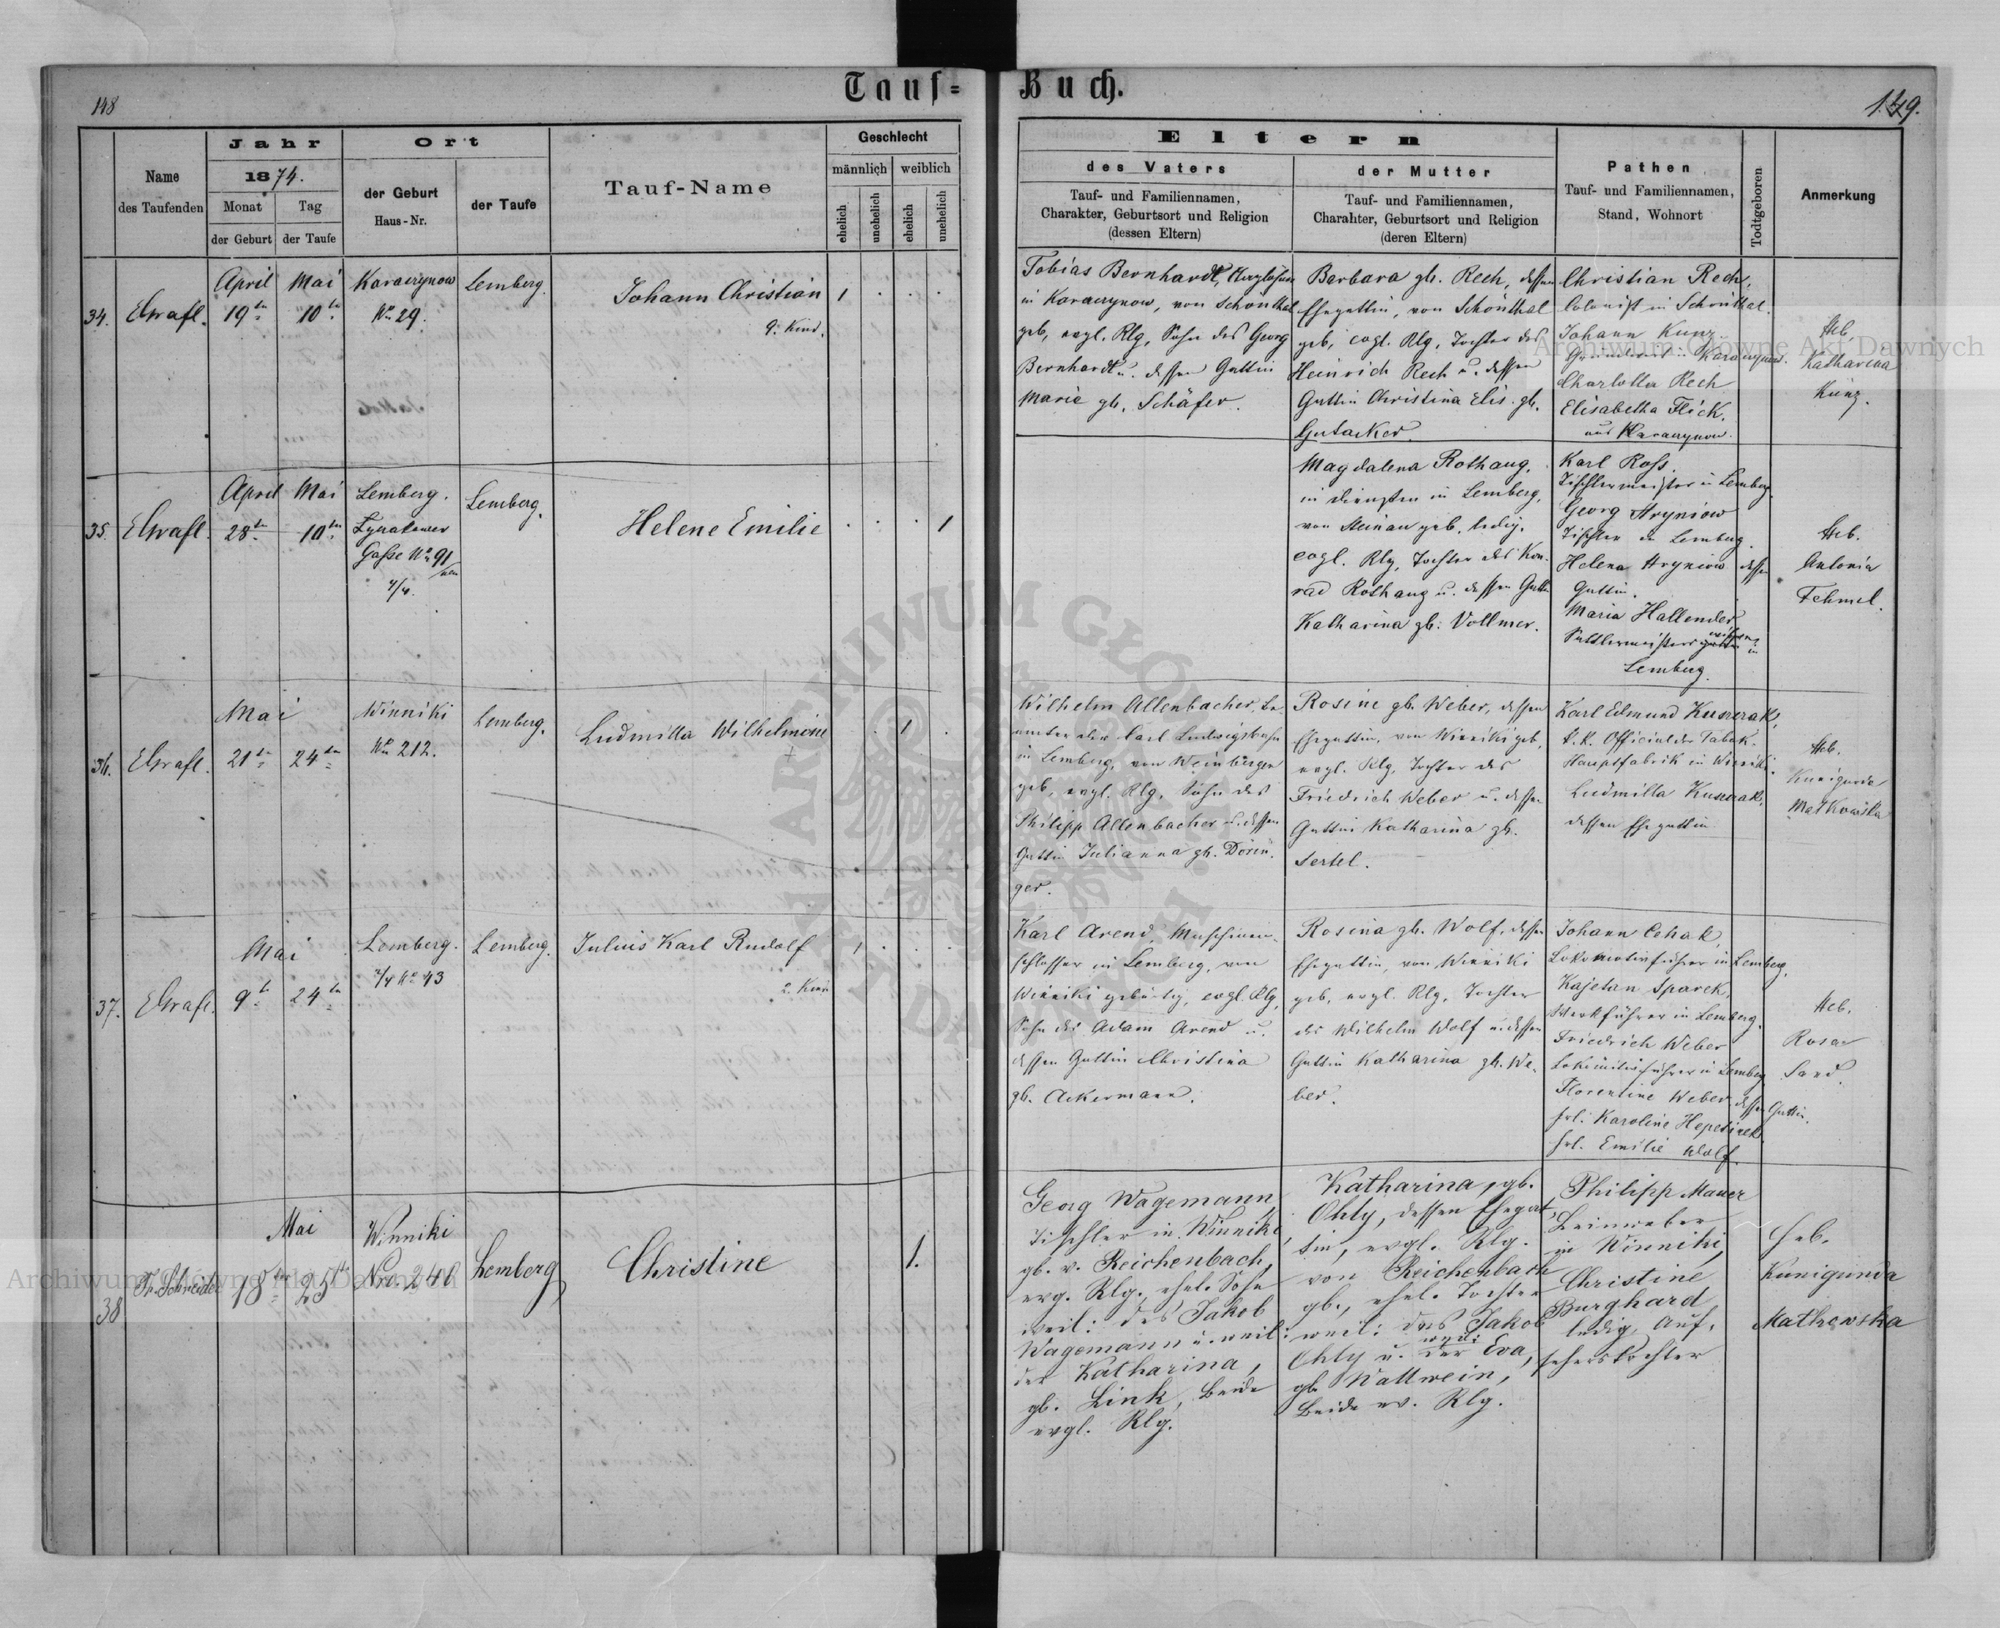 148
Tauf=
Name
des Taufenden
Jahr
1874.
Monat
Tag
der Geburt
der Taufe
Ort
der Geburt
Haus-Nr.
der Taufe
Tauf-Name
Geschlecht
männlich
weiblich
ehelich
unehelich
ehelich
unehelich
34.
April
Mai
19
10
Karaczynow
No 29.
Lemberg.
Johann Christian
9. Kind.
1
35.
April
Mai
28
10
Lemberg.
Gasse No 91
2/4.
Lemberg.
Helene Emilie
1
36.
Mai
21
24
Winniki
No 212.
Lemberg.
Ludmilla Wilhelmine
1
37.
Mai
9
24
Lemberg.
2/4 No 43
Lemberg.
Julius Karl Rudolf
2. Kind
1
38
Th. Schneider
Mai
18
25
Winniki
Nro. 240
Lemberg
Christine
1.
Buch.
149.
Eltern
des Vaters
Tauf- und Familiennamen,
Charakter, Geburtsort und Religion
(dessen Eltern)
der Mutter
Tauf- und Familiennamen,
Charakter, Geburtsort und Religion
(deren Eltern)
Pathen
Tauf- und Familiennamen,
Stand, Wohnort
Todtgeboren
Anmerkung
Tobias Bernhardt,
in Karaczynow, von Schönthal
geb, evgl. Rlg, Sohn des Georg
Bernhardt u. dessen Gattin
Marie gb. Schäfer.
Barbara gb. Rech, dessen
Ehegattin, von Schönthal
geb, evgl. Rlg, Tochter des
Heinrich Rech u. dessen
Gattin Christina Elis. gb.
Gutacker.
Christian Rech,
Colonist in Schönthal.
Johann Kunz
Karaczynow.
Charlotta Rech
Elisabetha Flick,
aus Karaczynow.
Heb.
Katharina
Kunz.
Magdalena Rothaug,
in Diensten in Lemberg,
von Steinau geb. ledig,
evgl. Rlg, Tochter des Kon-
rad Rothaug u. dessen Gattin
Katharina gb. Vollmer.
Karl Ross.
Tischlermeister in Lemberg.
Georg Hryniow
Tischler in Lemberg.
Helena Hryniow dessen
Gattin.
Maria Hallender
Sattlermeisters in
Lemberg.
Heb.
Antonia
Fehmel.
Wilhelm Allenbacher, Be-
amter der Carl Ludwigsbahn
in Lemberg, von Weinbergen
geb, evgl. Rlg, Sohn des
Philipp Allenbacher u. dessen
Gattin Julianna gb. Dörin-
ger.
Rosine gb. Weber, dessen
Ehegattin, von Winniki geb,
evgl. Rlg, Tochter des
Friedrich Weber u. dessen
Gattin Katharina gb.
Sertel.
Karl Edmund Kuszrak,
k.k. Official der Tabak-
Hauptfabrik in Winniki.
Ludmilla Kuszrak,
dessen Ehegattin
Heb.
Kunigunde
Matkowska
Karl Arend, Maschinen-
schlosser in Lemberg, von
Winniki gebürtig, evgl. Rlg,
Sohn des Adam Arend u.
dessen Gattin Christina
gb. Ackermann.
Rosina gb. Wolf, dessen
Ehegattin, von Winniki
geb, evgl. Rlg, Tochter
des Wilhelm Wolf u. dessen
Gattin Katharina gb. We-
ber.
Johann Cehak,
Lokomotivführer in Lemberg,
Kajetan Sparek,
Werkführer in Lemberg.
Friedrich Weber
Lokomotivführer in Lemberg
Florentine Weber dessen Gattin.
frl. Karoline
frl. Emilie Wolf.
Heb.
Rosa
Sand.
Georg Wagemann,
Tischler in Winniki,
gb. v. Reichenbach,
evg. Rlg., ehel. Sohn
weil: des Jakob
Wagemann u. weil:
der Katharina,
gb. Link, Beide
evgl. Rlg.
Katharina, gb.
Ohly, dessen Ehegat-
tin, evgl. Rlg.
von Reichenbach
gb., ehel. Tochter
weil: des Jakob
Ohly u. weil: der Eva,
gb. Wallwein,
Beide ev. Rlg.
Philipp Mauer
Leinweber
in Winniki,
Christine
Burghard
ledig, Auf-
seherstochter
Heb.
Kunigunda
Mathowska
Archiwum Główne Akt Dawnych
Archiwum Główne Akt Dawnych